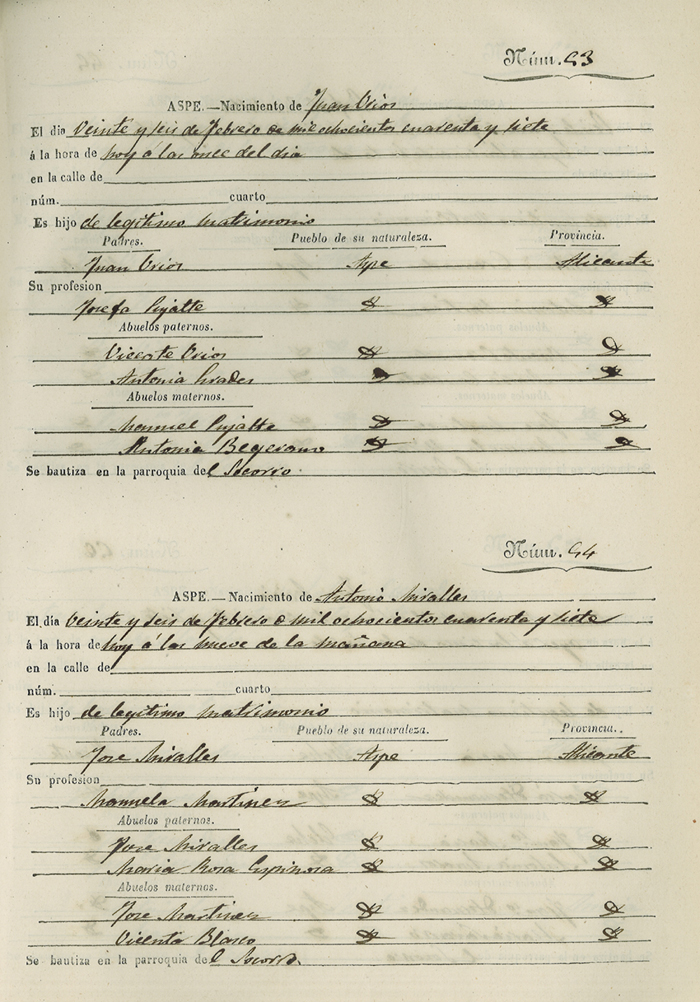 Núm. 43
ASPE.—Nacimiento de Juan Orios
El dia veinte y seis de Febrero de mil ochocientos cuarenta y siete
á la hora de hoy á las once del dia
en la calle de
núm. cuarto
Es hijo de legitimo matrimonio
Padres. Pueblo de su naturaleza. Provincia.
Juan Orios Aspe Alicante
Su profesion
Josefa Pujalte
Abuelos paternos.
Vicente Orios
Antonia
Abuelos maternos.
Manuel Pujalte
Antonia
Se bautiza en la parroquia del Socorro
Núm. 44
ASPE.—Nacimiento de Antonio Miralles
El día veinte y seis de Febrero de mil ochocientos cuarenta y siete
á la hora de hoy á las nueve de la mañana
en la calle de
núm. cuarto
Es hijo de legitimo matrimonio
Padres. Pueblo de su naturaleza. Provincia.
Jose Miralles Aspe Alicante
Su profesion
Manuela Martinez
Abuelos paternos.
Jose Miralles
Maria Rosa Espinosa
Abuelos maternos.
Jose Martinez
Vicenta Blasco
Se bautiza en la parroquia del Socorro.